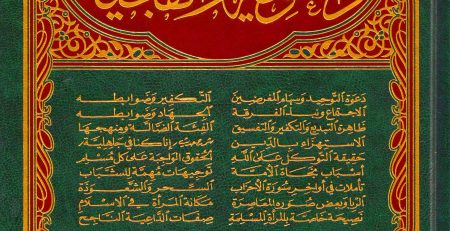 دعوة التوحيد وسهام المغرضين التكفير وضوابطه
الاجتماع ونبذ الفرقة الجهاد وضوابطه
ظاهرة التبديع والتكفير والتفسيق الفئة الضالة ومنهجها
الاستهزاء بالدين إنا كنا في جاهلية
حقيقة التوكل على الله الحقوق الواجبة على كل مسلم
أسباب نجاة الأمة توجيهات مهمة للشباب
تأملات في أواخر سورة الأحزاب السحر والشعوذة
الربا وبعض صوره المعاصرة مكانة المرأة في الإسلام
نصيحة خاصة للمرأة المسلمة صفات الداعية الناجح